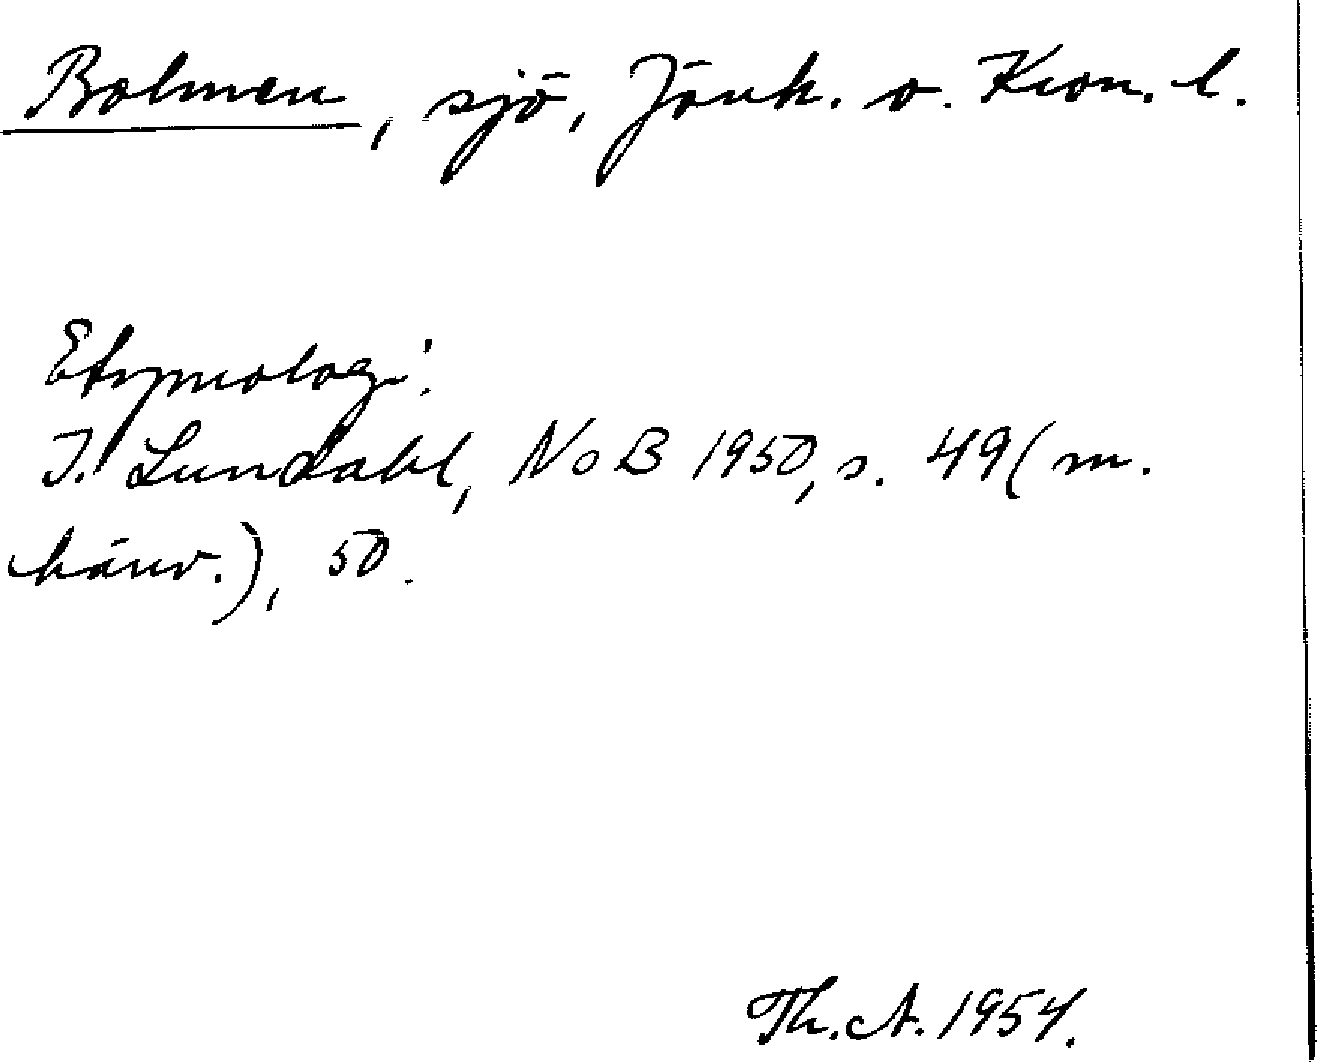 Bolmen, sjö, Jönk. o. Kron. l.
Etymologi:
I. Lundahl, NoB 1950, s. 49 (m.
hänv.), 50.
Th. A. 1954.